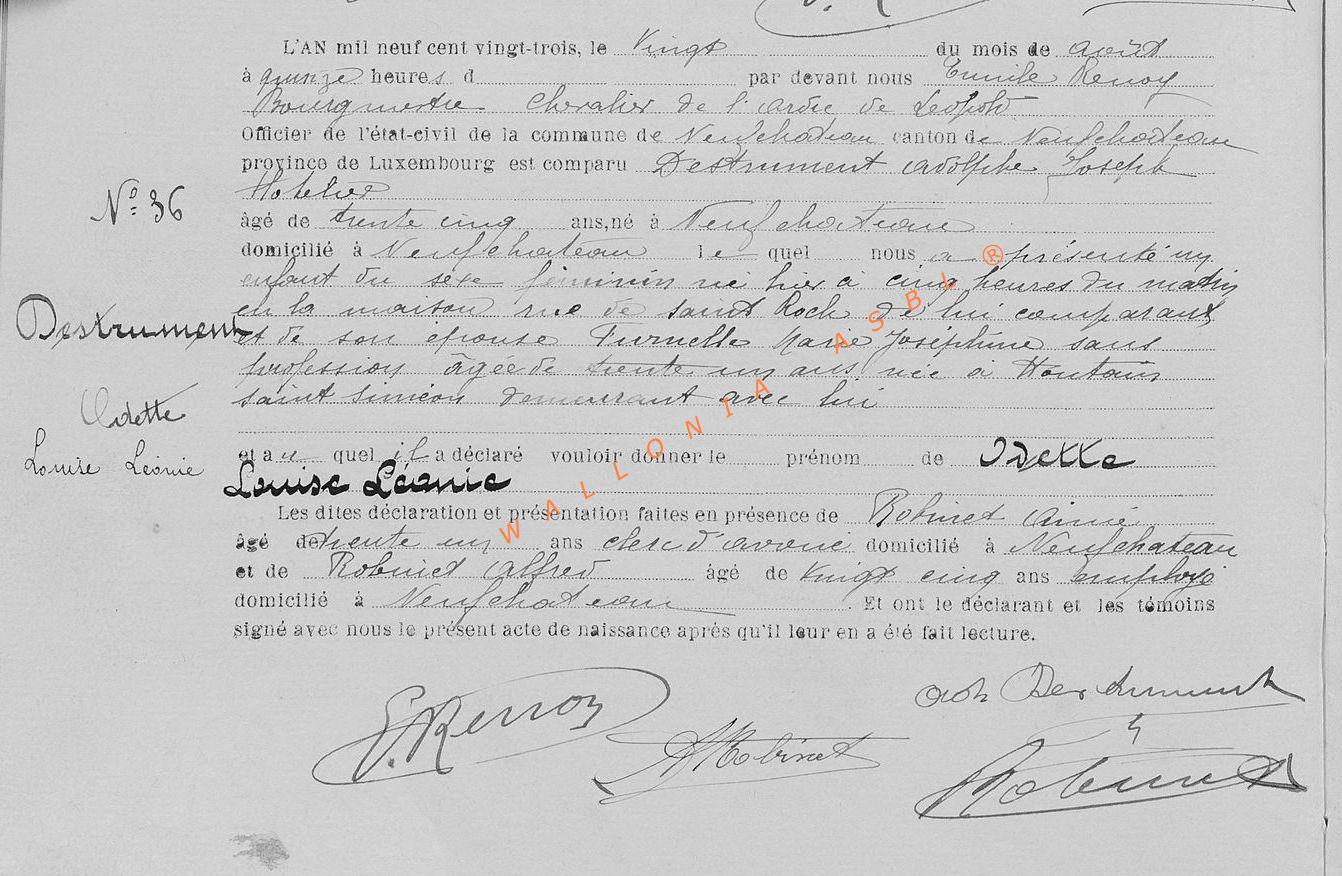 L'AN mil neuf cent vingt-trois, le Vingt du mois de août
à quinze heures d par devant nous Emile Renoy
Bourgmestre Chevalier de l'ordre de Léopold
Officier de l'état-civil de la commune de Neufchateau canton de Neufchateau
province de Luxembourg est comparu Destrument Adolphe Joseph
Hotelier
N° 36
âgé de trente cinq ans, né à Neufchateau
domicilié à Neufchateau le quel nous a présenté un
enfant du sexe féminin né hier à cinq heures du matin
en la maison rue de saint Roch de lui comparant
Destrument
et de son épouse Furnelle Marie Joséphine sans
profession âgée de trente un ans née à Houtain
saint siméon demeurant avec lui
Odette
Louise Léonie
et au quel il a déclaré vouloir donner le prénom de Odette
Louise Léonie
Les dites déclaration et présentation faites en présence de Robinet Aimé
âgé de trente un ans clerc d'avoué domicilié à Neufchateau
et de Robinet Alfred âgé de Vingt cinq ans employé
domicilié à Neufchateau. Et ont le déclarant et les témoins
signé avec nous le présent acte de naissance après qu'il leur en a été fait lecture.
E. Renoy
Ad. Destrument
A Robinet
Robinet
WALLONIA ASBL ®